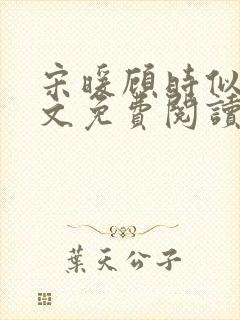 宋暖顾時似
文免費閱讀
葉天公子